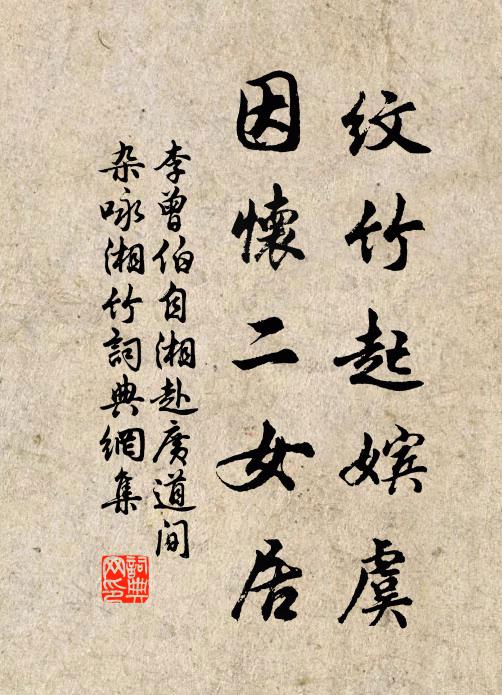 纹竹起嫔虞
因懷二女居
李曾伯自湘赴廣道间
杂咏湘竹詞典網集
詞典网印